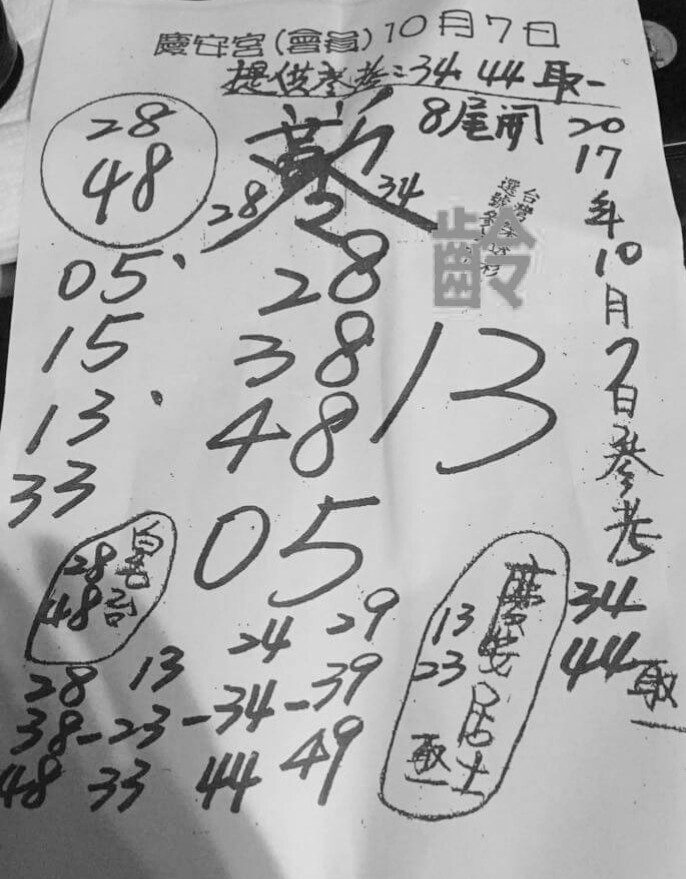 慶安宮(會員)10月7日
提供參考:34 44取一
8尾開
28
48
28
34
齡
2017年10月7日參考
34
44取一
05、
15
13、
33
28
38
48
13
05
28
48
慶安居士
13
23
取一
28 13 24 29
38-23-34-39
48 33 44 49